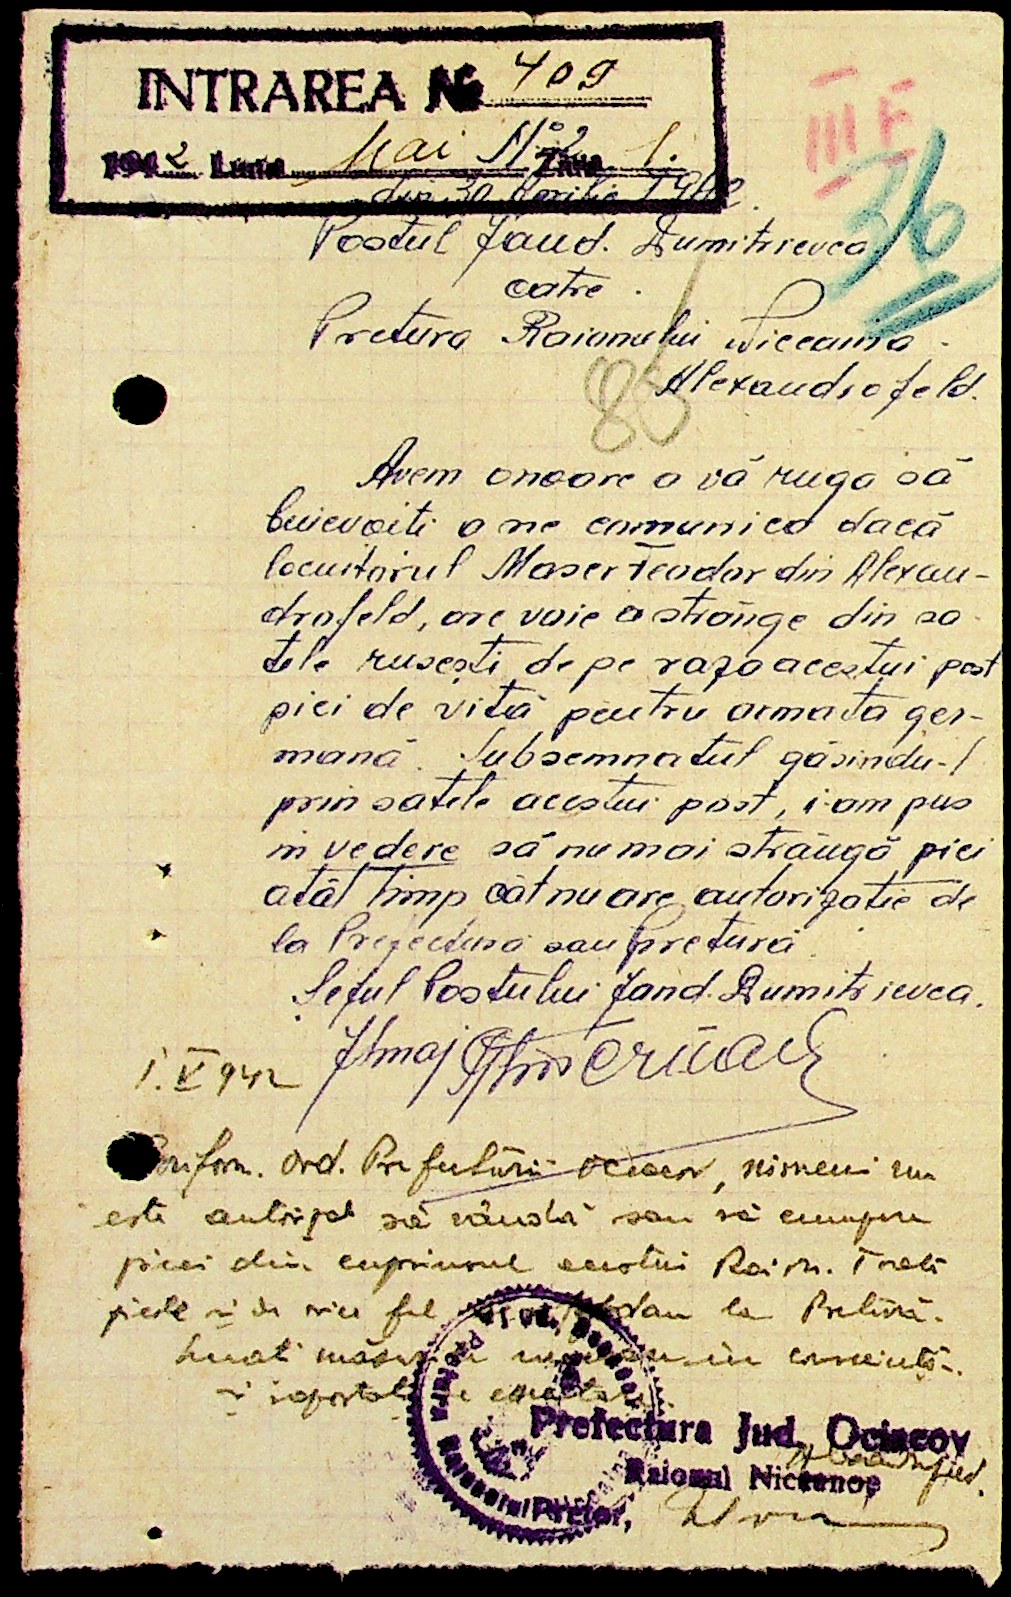 INTRAREA No 409
1942 Luna Mai Ziua 1.
No 2
din 30 Aprilie 1942.
III F
36
Postul Jand. Dumitrievca
catre
Pretura Raionului Niceanno
88
Alexandrofeld.
Avem onoare a vă ruga să
buievoiti a ne comunica dacă
locuitorul Maser Teodor din Alexan-
drofeld, are voie a strânge din sa-
tele rusești de pe raza acestui post
piei de vită pentru armata ger-
mană. Subsemnatul găsindu-l
prin satele acestui post, i-am pus
in vedere să nu mai strângă piei
atât timp cât nu are autorizatie de
la Prefectura sau pretură
Șeful Postului Jand. Dumitrievca.
1. V 942
Conform. Ord. Prefecturii Oceacov, nimeni nu
este autorizat să vândă sau să cumpere
piei din cuprinsul acestui Raion. Toate
pieile și de orice fel se predau la Pretură.
Luati măsuri în consecință
și raportati
Prefectura Jud. Ociacov
Raionul Niceanoe
Alexandrofeld.
Pretor,